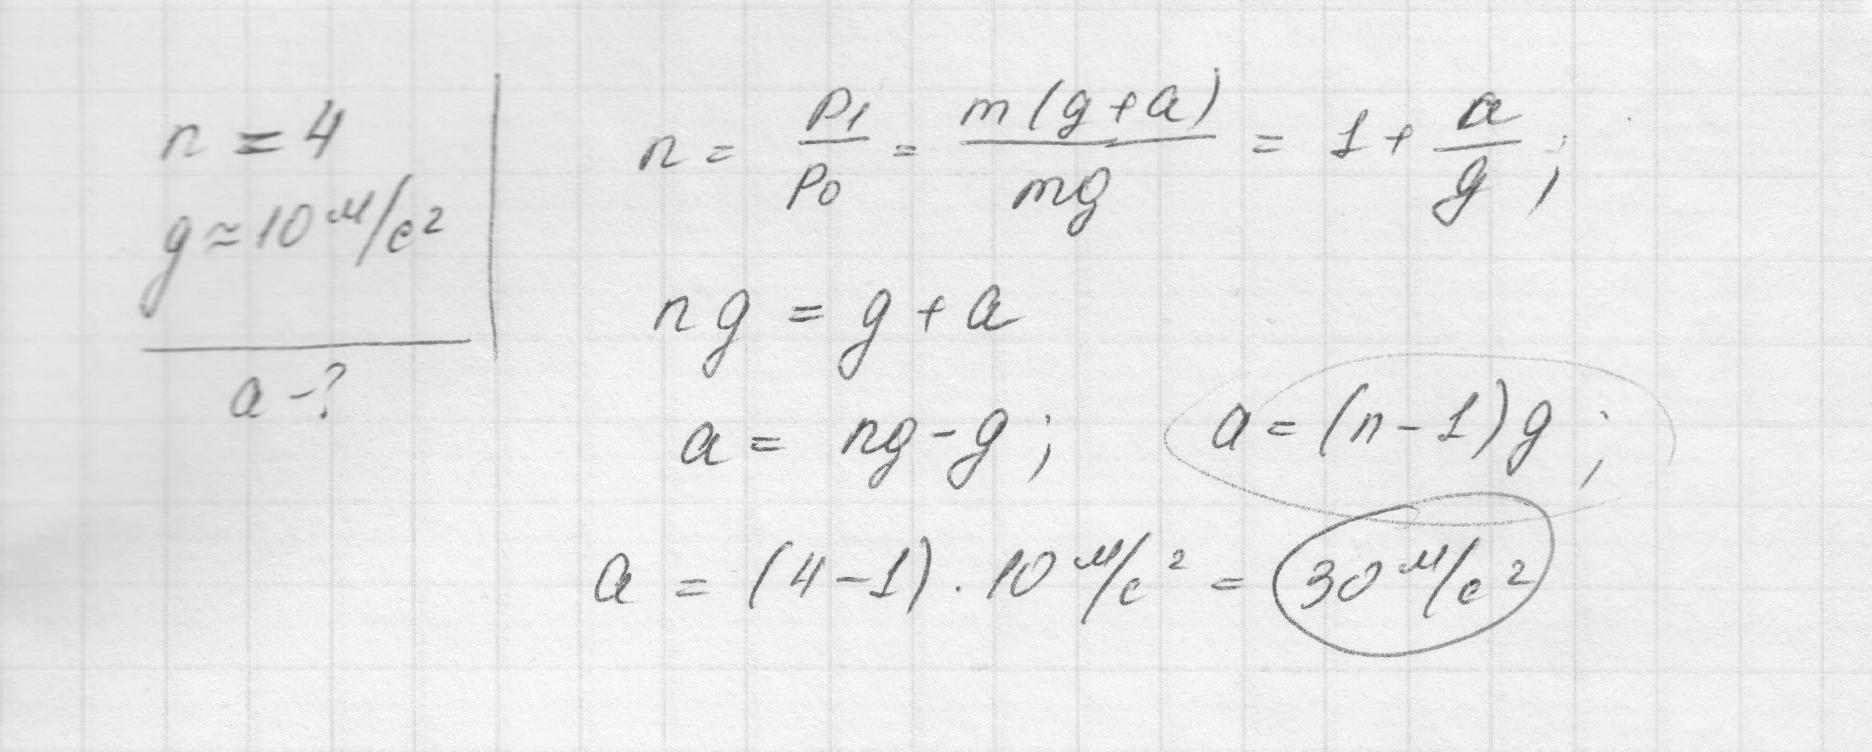 n = 4
g ≈ 10 м/с²
a - ?
n = P₁/P₀ = m(g+a)/mg = 1 + a/g ;
ng = g + a
a = ng - g ; a = (n - 1)g ;
a = (4-1) · 10 м/с² = 30 м/с²